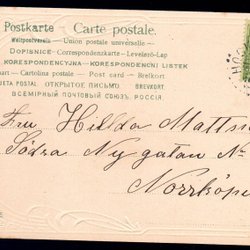 Postkarte — Carte postale.
Weltpostverein — Union postale universelle —
DOPISNICE — Correspondenzkarte — Levelező-Lap
KORESPONDENCYJNA — KORESPONDENCNI LISTEK
art — Cartolina postale — Post card — Brefkort
TARJETA POSTAL ОТКРЫТОЕ ПИСЬМО BREVKORT
ВСЕМІРНЫЙ ПОЧТОВЫЙ СОЮЗЪ РОССІЯ
Fru Hilda Mattss
Södra Nygatan No
Norrköpi